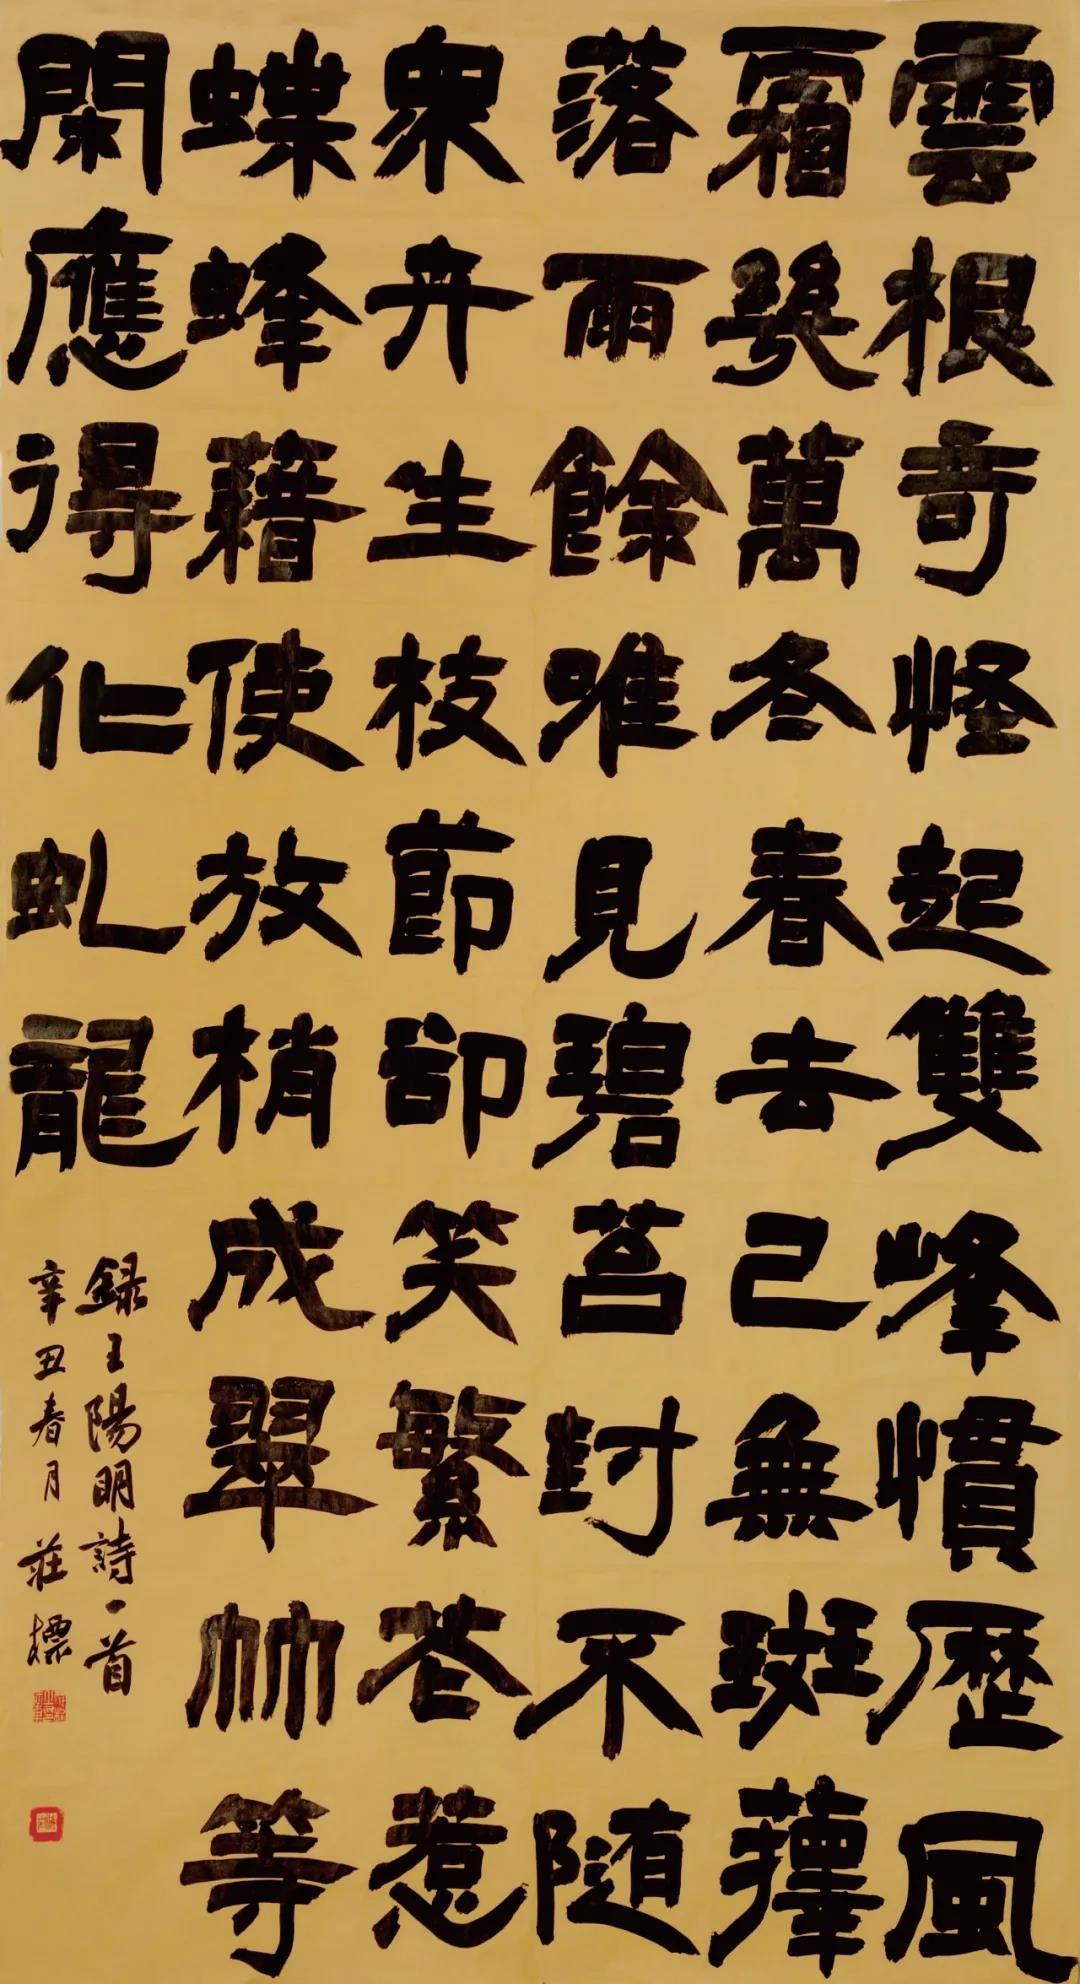 雲根奇怪起雙峰慣歷風
霜幾萬冬春去已無斑蘀
落雨餘唯見碧苔封不隨
衆卉生枝節卻笑繁花惹
蝶蜂藉使放梢成翠竹等
閑應得化虬龍
錄王陽明詩一首
辛丑春月莊標